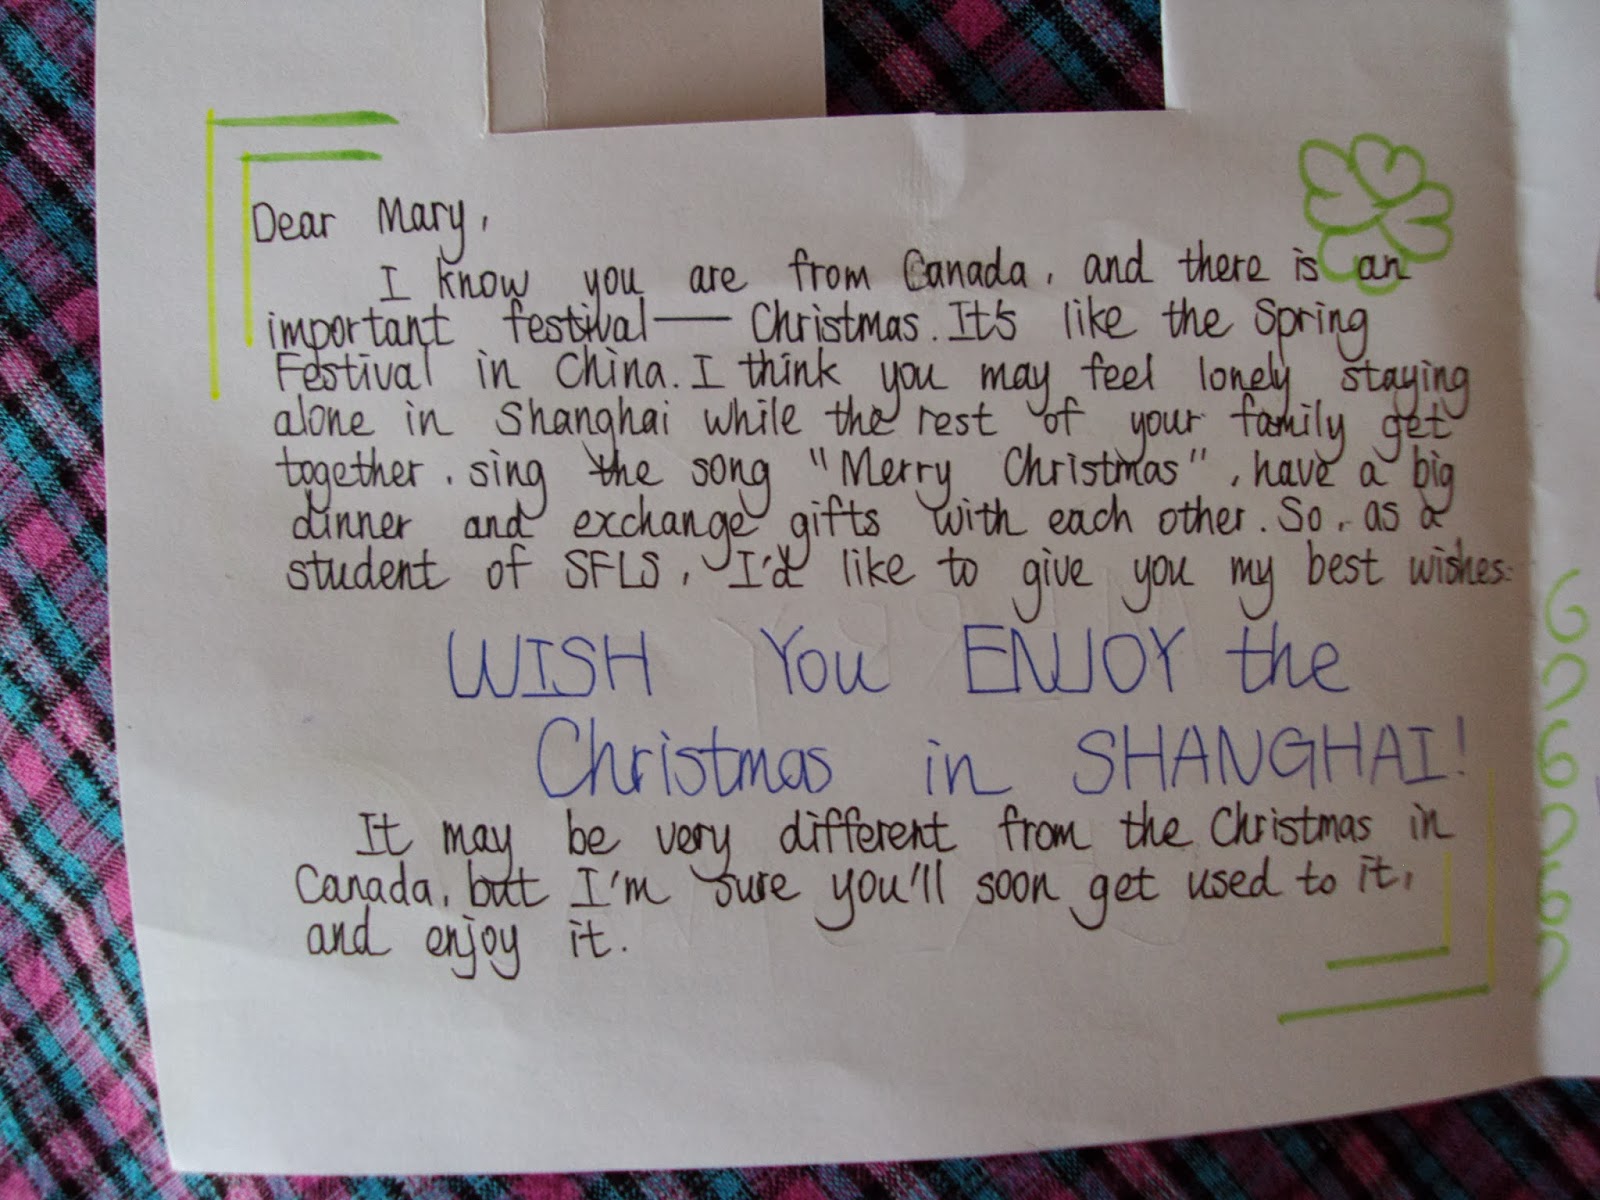 Dear Mary,
I know you are from Canada, and there is an
important festival—— Christmas. It's like the Spring
Festival in China. I think you may feel lonely staying
alone in Shanghai while the rest of your family get
together, sing the song "Merry Christmas", have a big
dinner and exchange gifts with each other. So, as a
student of SFLS, I'd like to give you my best wishes:
WISH You ENJOY the
Christmas in SHANGHAI!
It may be very different from the Christmas in
Canada, but I'm sure you'll soon get used to it,
and enjoy it.